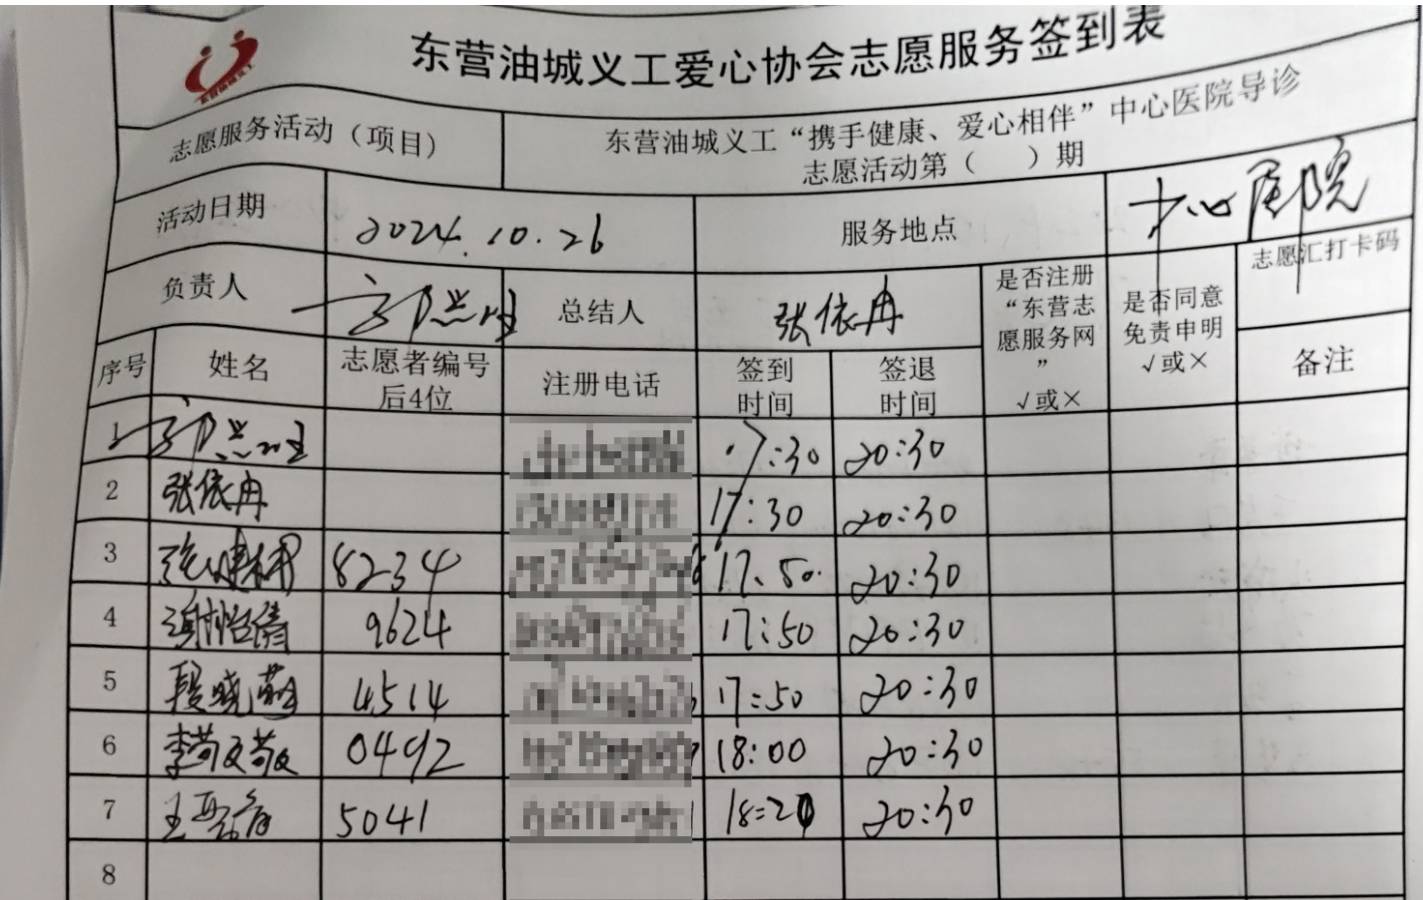 东营油城义工爱心协会志愿服务签到表
志愿服务活动（项目） 东营油城义工“携手健康、爱心相伴”中心医院导诊
志愿活动第（ ）期
活动日期 2024.10.26 服务地点 中心医院
负责人 总结人 张依冉 是否注册“东营志愿服务网” √或× 是否同意免责申明 √或× 志愿汇打卡码
序号 姓名 志愿者编号后4位 注册电话 签到时间 签退时间 备注
1 17:30 20:30
2 张依冉 17:30 20:30
3 8234 17:50 20:30
4 谢怡倩 9624 17:50 20:30
5 段晓 4514 17:50 20:30
6 李 0492 18:00 20:30
7 王 5041 18:20 20:30
8